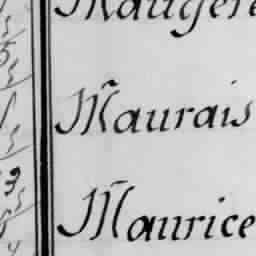 Maugere
Maurais
Maurice